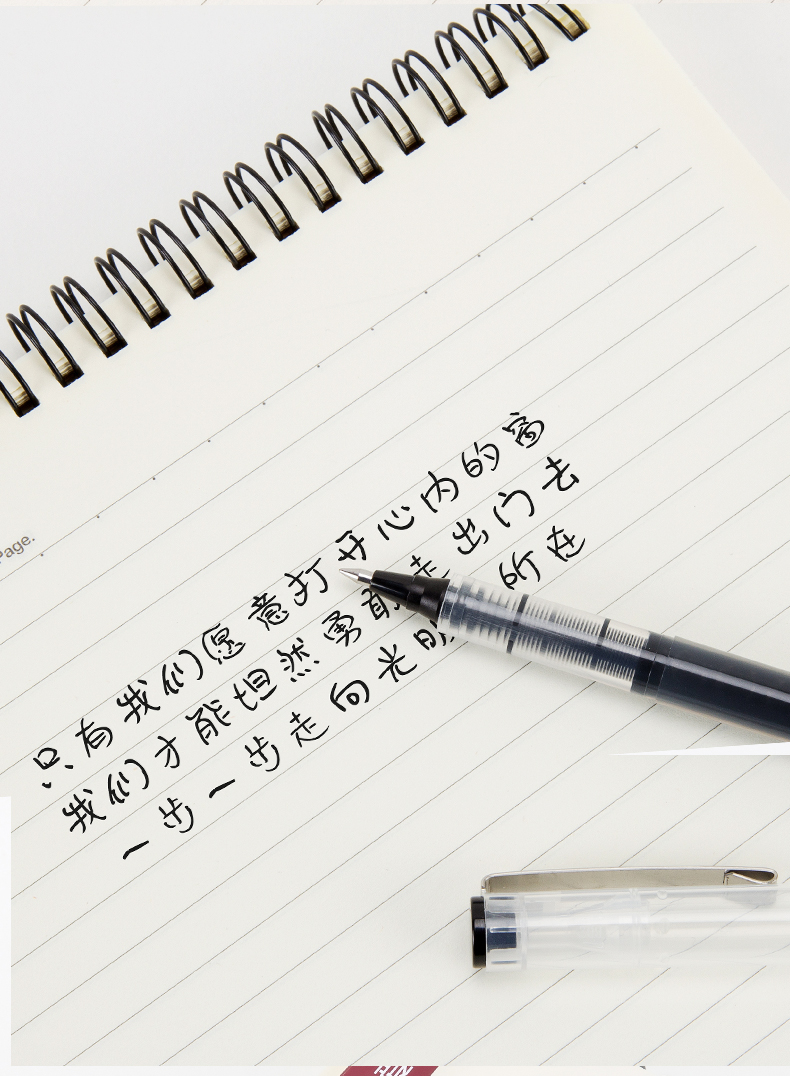 Page.
只有我们愿意打开心内的窗
我们才能坦然勇敢走出门去
一步一步走向光明所在